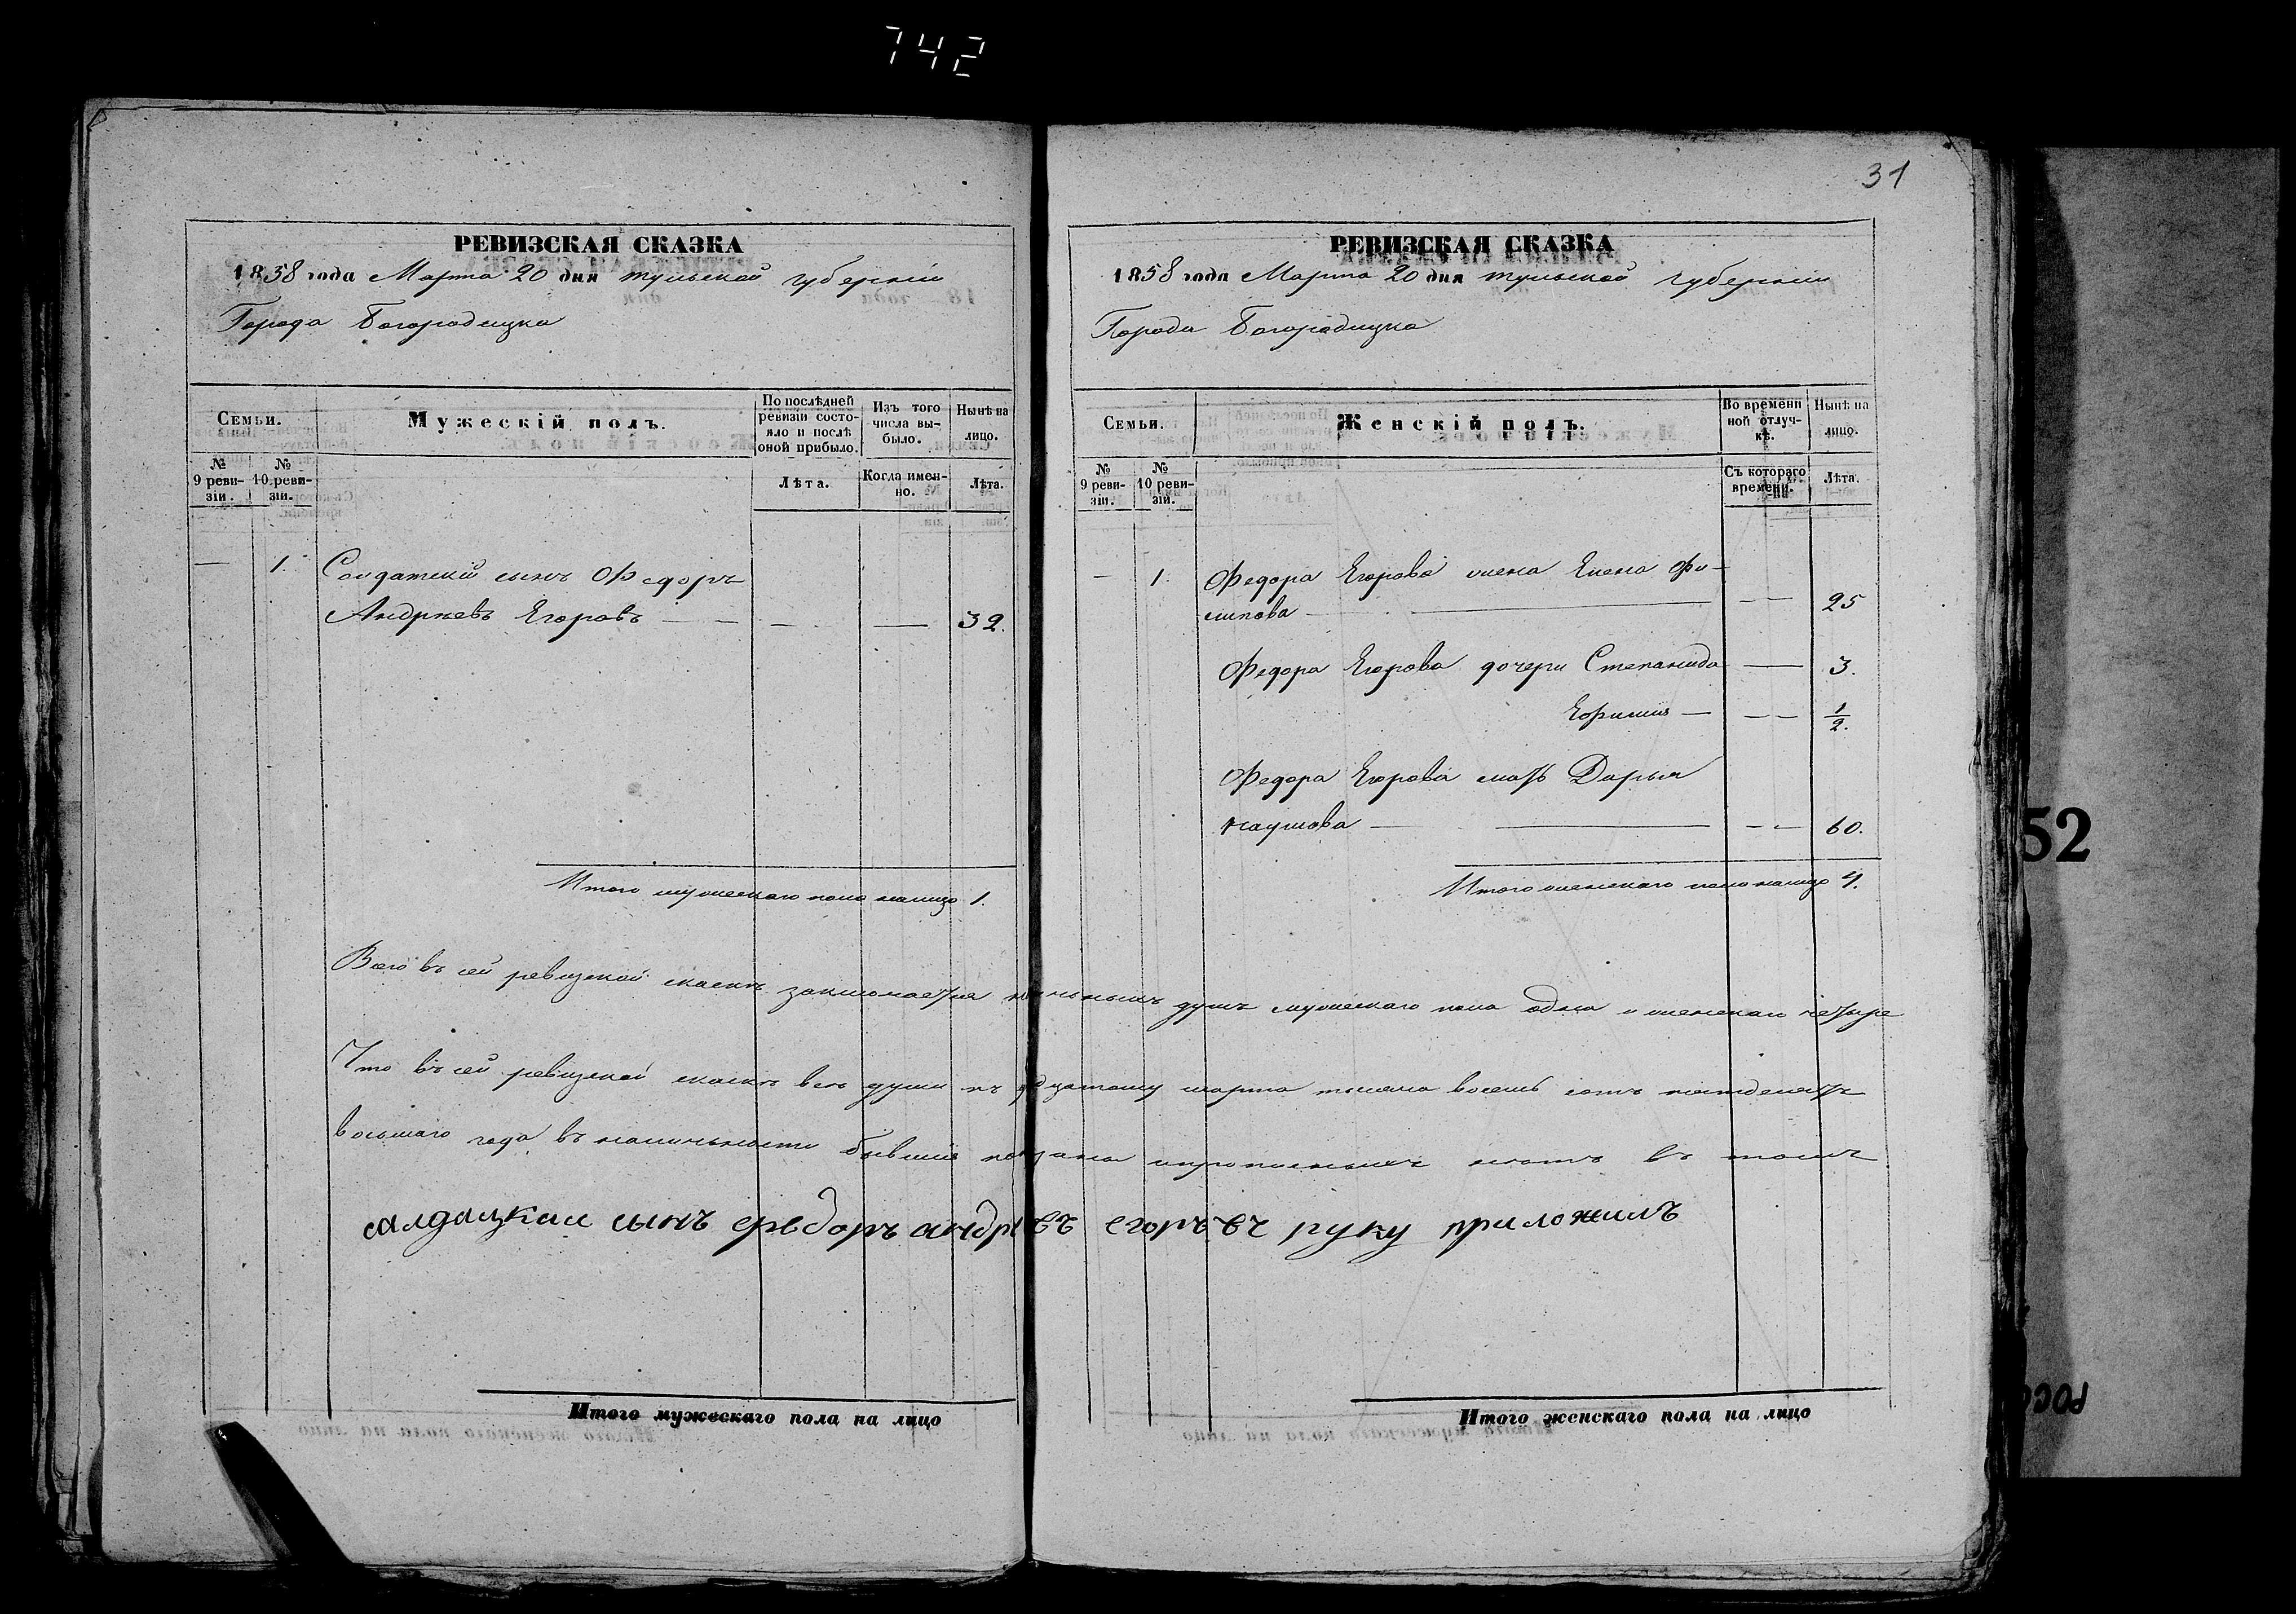 742
31
РЕВИЗСКАЯ СКАЗКА
1858 года Марта 20 дня Тульской губерніи
Города Богородицка
Семьи.
Мужескій полъ.
По послѣдней ревизіи состояло и послѣ оной прибыло.
Изъ того числа выбыло.
Нынѣ на лицо.
№ 9 ревизіи.
№ 10 ревизіи.
Лѣта.
Когда именно.
Лѣта.
— 1. Солдатскій сынъ Федоръ
Андрѣевъ Егоровъ — — — — 32.
Итого мужескаго пола налицо 1.
РЕВИЗСКАЯ СКАЗКА
1858 года Марта 20 дня Тульской губерніи
Города Богородицка
Семьи.
Женскій полъ.
Во временной отлучкѣ.
Нынѣ на лицо.
№ 9 ревизіи.
№ 10 ревизіи.
Съ котораго времени.
Лѣта.
— 1. Федора Егорова жена Елена Фи-
липова — — — — 25
Федора Егорова дочери Степанида — 3.
Ефимия — — — 1/2.
Федора Егорова мать Дарья
Наумова — — — — 60.
Итого женскаго пола налицо 4.
Всего въ сей ревизской сказкѣ заключается наличныхъ душъ мужескаго пола одна и женскаго четыре
Что въ сей ревизской сказкѣ всѣ души къ двацатому марта тысяча восемь сотъ пятьдесятъ
восьмаго года въ наличности бывшие показаны и прописныхъ нѣтъ въ томъ
салдацкаи сынъ федоръ андрѣевъ егоръевъ руку приложилъ
Итого мужескаго пола на лицо
Итого женскаго пола на лицо
52